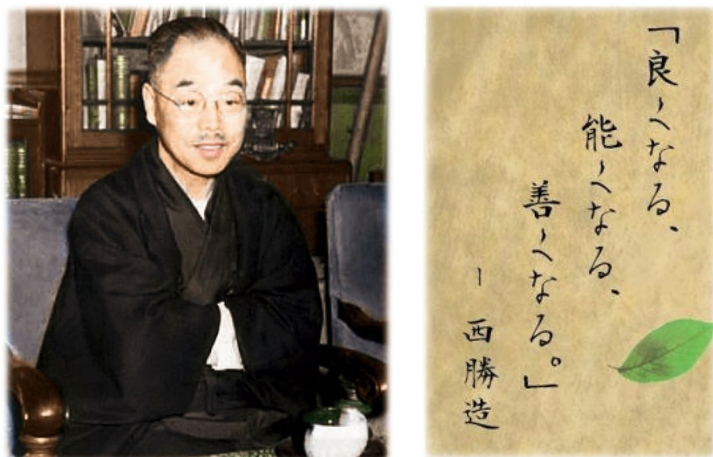 「良くなる、
能くなる、
善くなる。」
— 西勝造